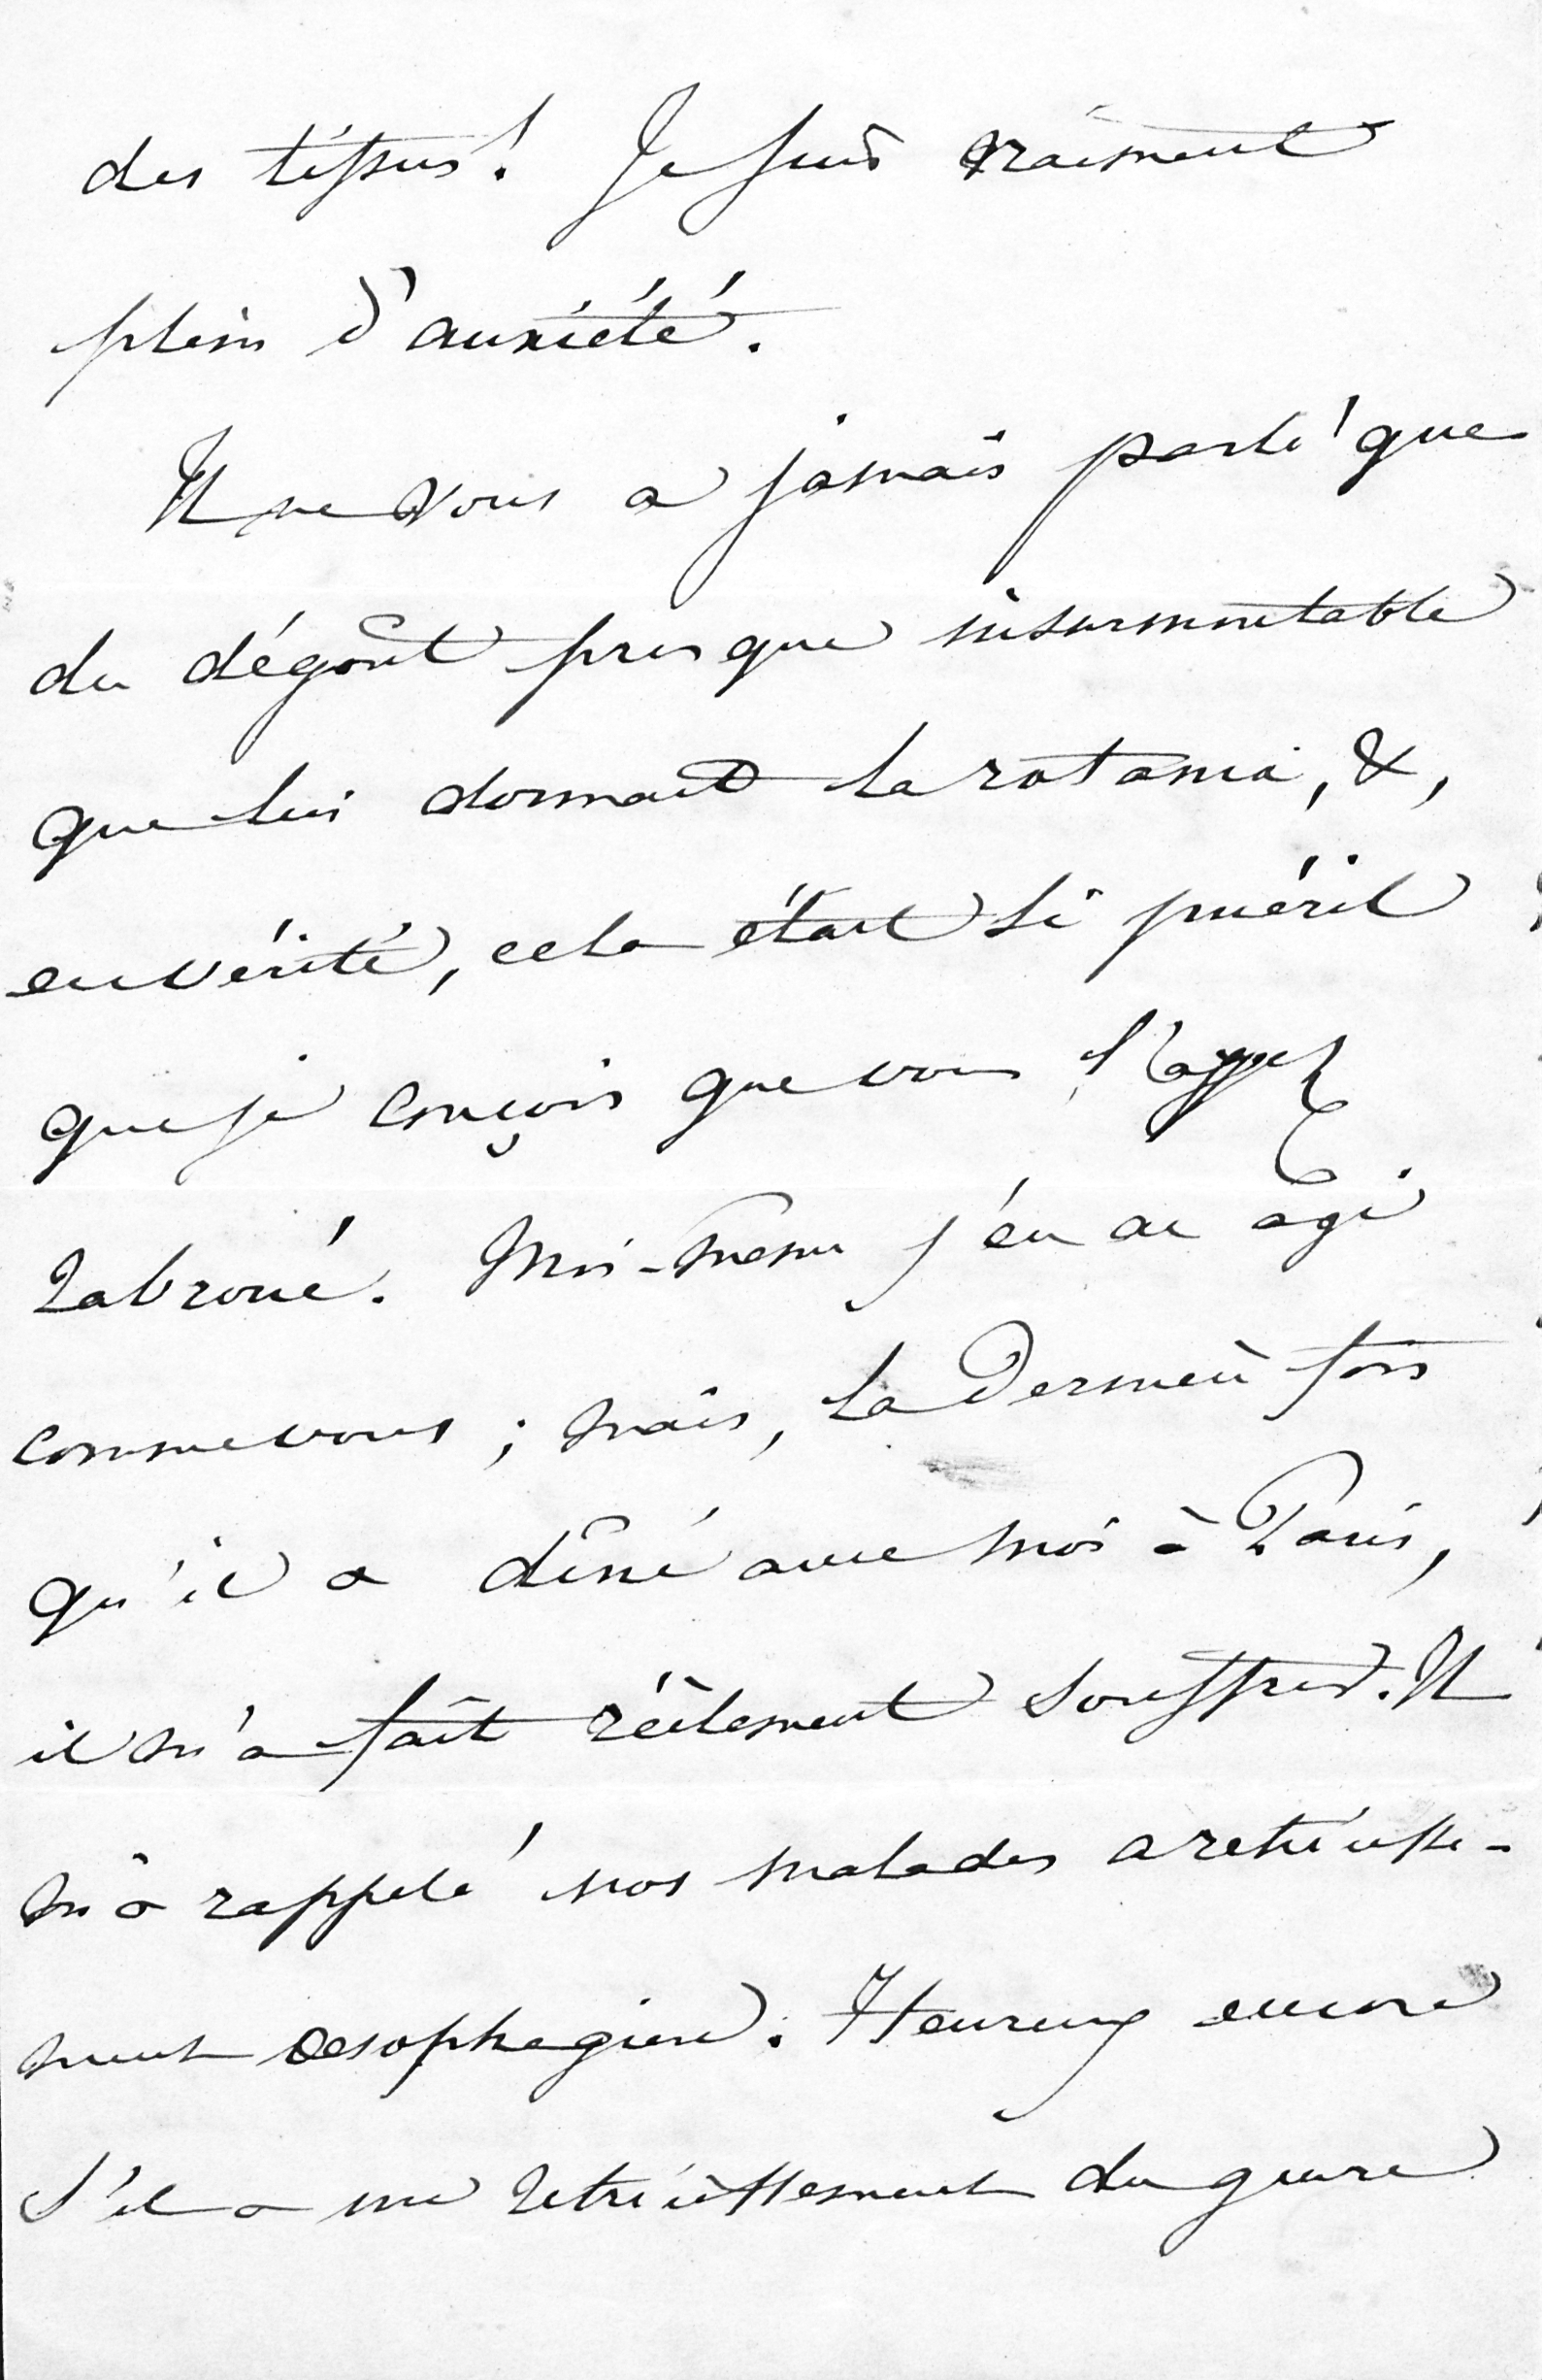 des tissus! Je suis vraiment
plein d'anxiété.
Il ne vous a jamais parlé que
du dégoût presque insurmontable
que lui donnait le ratania, &,
en vérité, cela était si puéril
que je conçois que vous l'ayez
rabroué. Moi-même j'en ai agi
comme vous ; mais, la dernière fois
qu'il a dîné avec moi à Paris,
il m'a fait réèlement souffrir. Il
m'a rappelé nos malades à rétrécisse-
ment œsophagien. Heureux encore
s'il a un rétrécissement du genre